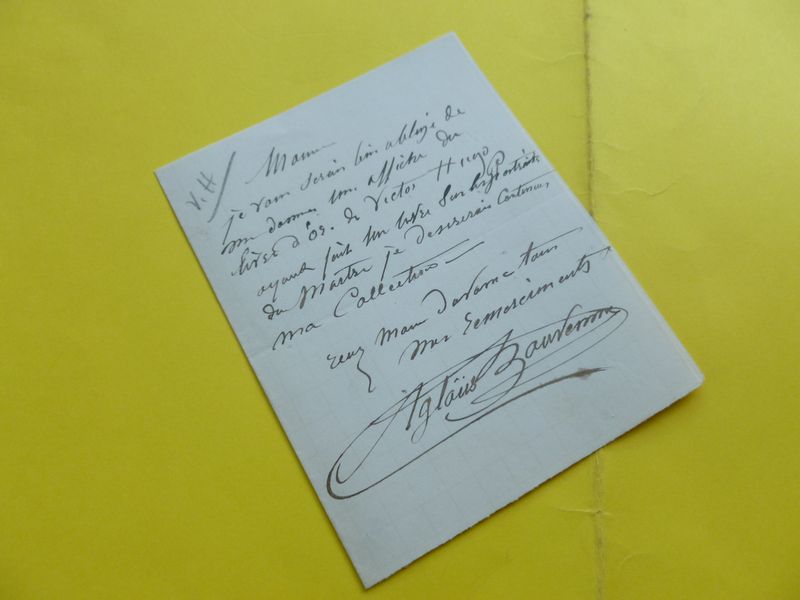 V. H
je vous serais bien obligé de
me donner une affiche du
livre d'Or. de Victor Hugo
ayant fait un livre Sur les Portraits
du Maitre je desirerais Continuer
ma Collection
Mon davance tous
mes remerciments
Aglaüs Bouvenne